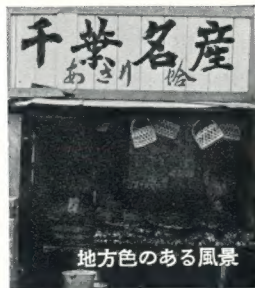 千葉名産
あさり 蛤
地方色のある風景